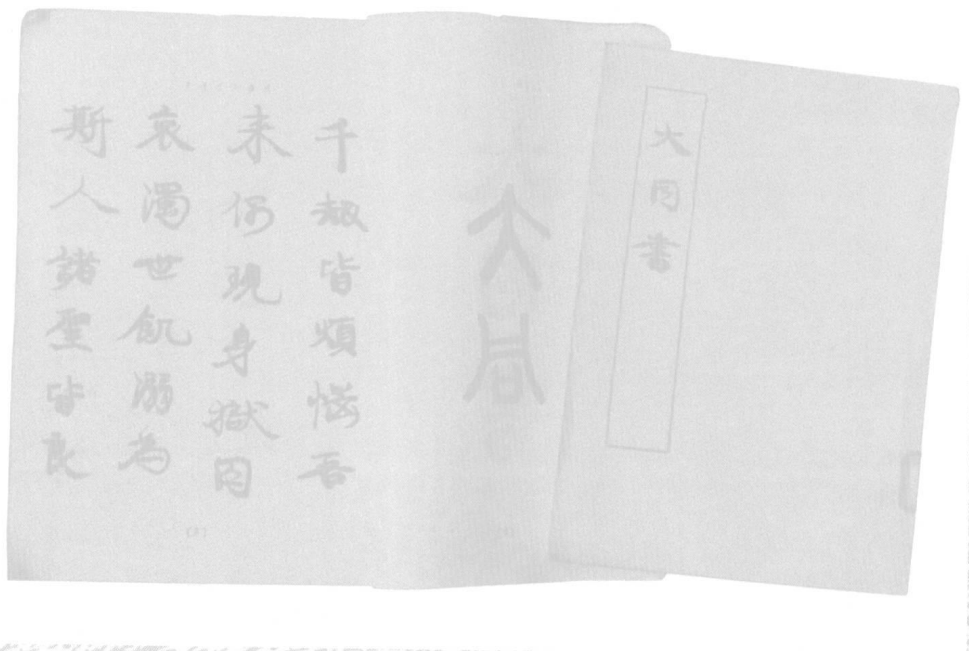 大同書
大同
千劫皆煩惱吾
來偶現身獄囚
哀濁世飢溺為
斯人諸聖皆良